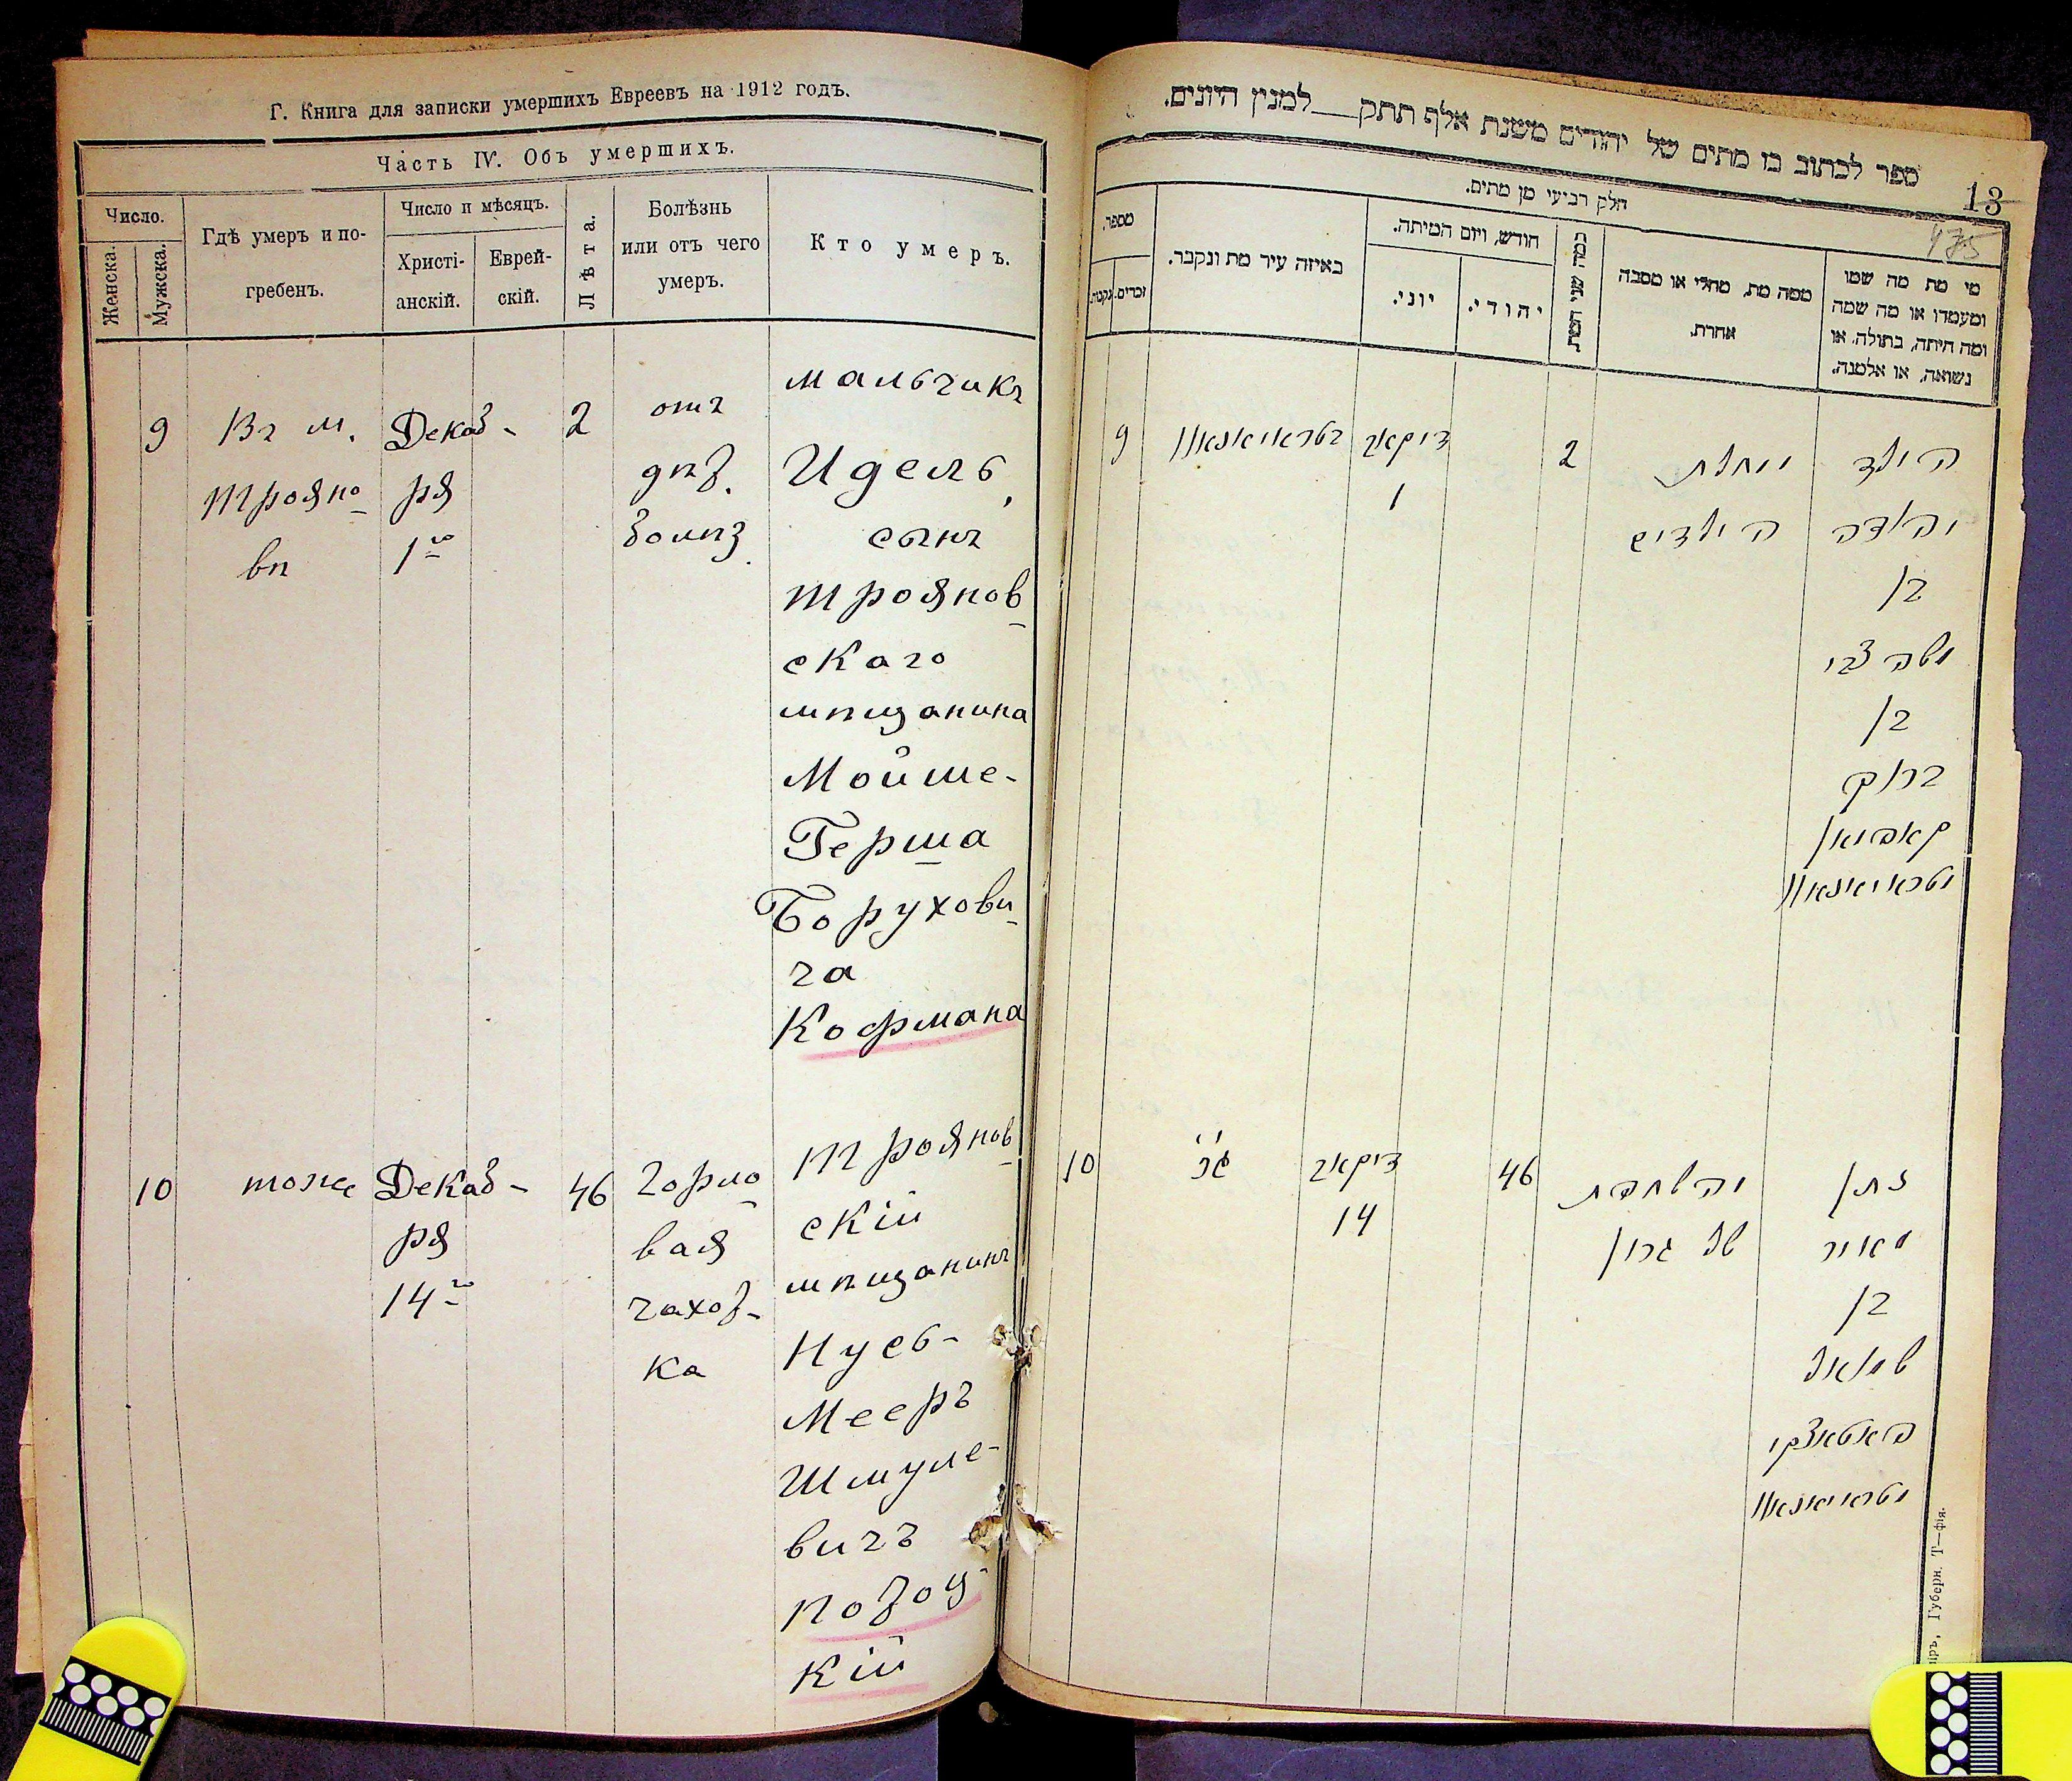 Г. Книга для записки умершихъ Евреевъ на 1912 годъ.
Часть IV. Объ умершихъ.
Число.
Женска.
Мужска.
Гдѣ умеръ и по-
гребенъ.
Число и мѣсяцъ.
Христі-
анскій.
Еврей-
скій.
Лѣта.
Болѣзнь
или отъ чего
умеръ.
Кто умеръ.
9
Въ м.
Трояно
вѣ
Декаб-
ря
1го
2
отъ
дѣт.
болѣз.
мальчикъ
Идель,
сынъ
Троянов
скаго
мѣщанина
Мойше-
Герша
Борухови
ча
Кофмана
10
тоже
Декаб-
ря
14го
46
Горло
вая
чахот-
ка
Троянов
скій
мѣщанинъ
Мееръ
Шмуле-
вичъ
кій
ספר לכתוב בו מתים של יהודים משנת אלף תתק___למנין היונים.
13
475
חלק רביעי מן מתים.
מספר.
זכרים.
נקבות.
באיזה עיר מת ונקבר.
חודש, ויום המיתה.
יוני.
יהודי.
כמה שני המת
ממה מת, מחלי או מסבה
אחרת.
מי מת מה שמו
ומעמדו או מה שמה
ומה היתה, בתולה, או
נשואה, או אלמנה.
9
דיקאב
1
2
הילדים
הילד
בן
משה צבי
בן
ברוך
קאפמאן
10
דיקאב
14
46
של גרון
מאיר
בן
іръ, Губерн. Т—фія.